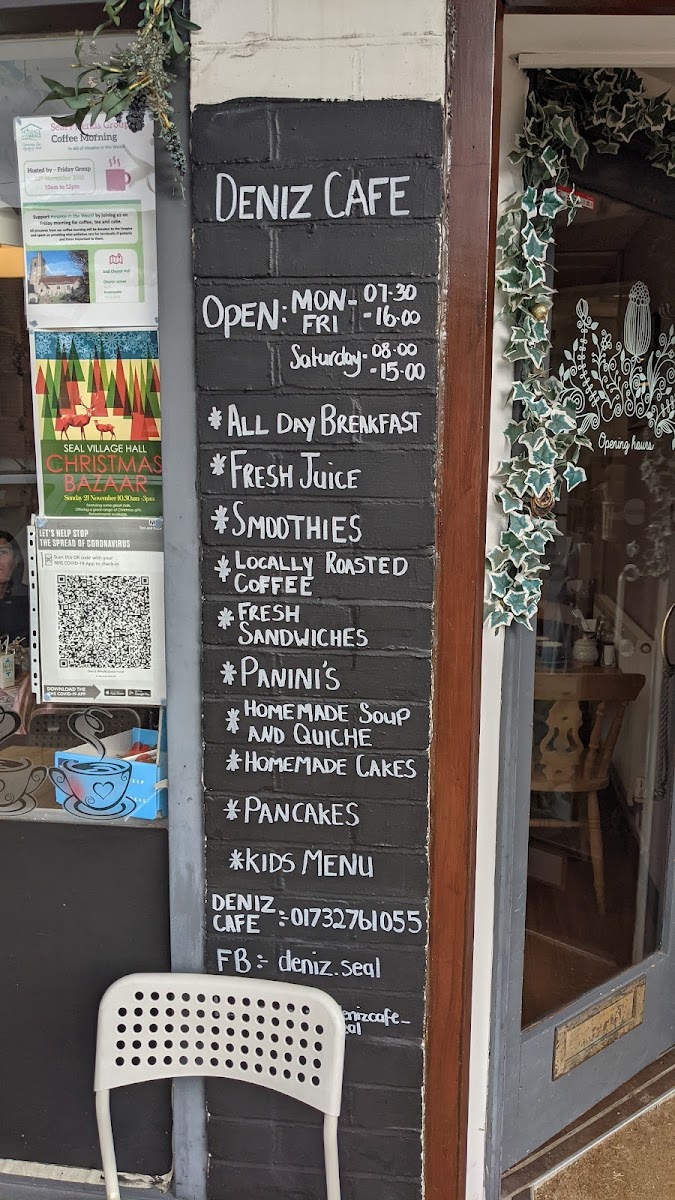 Coffee Morning
Hosted by - Friday Group
10am to 12pm
Seal Church Hall
SEAL VILLAGE HALL
CHRISTMAS
BAZAAR
Sunday 21 November 10.30am -3pm
LET'S HELP STOP
THE SPREAD OF CORONAVIRUS
Scan this QR code with your
NHS COVID-19 App to check-in
DOWNLOAD THE
NHS COVID-19 APP
DENIZ CAFE
OPEN: MON- 07-30
FRI - 16-00
Saturday - 08.00
- 15-00
* ALL DAY BREAKFAST
* FRESH JUICE
* SMOOTHIES
* LOCALLY ROASTED
COFFEE
* FRESH
SANDWICHES
* PANINI'S
* HOMEMADE SOUP
AND QUICHE
* HOMEMADE CAKES
* PANCAKES
* KIDS MENU
DENIZ
CAFE :- 01732761055
FB:- deniz.seal
enizcafe_
eal
Opening hours